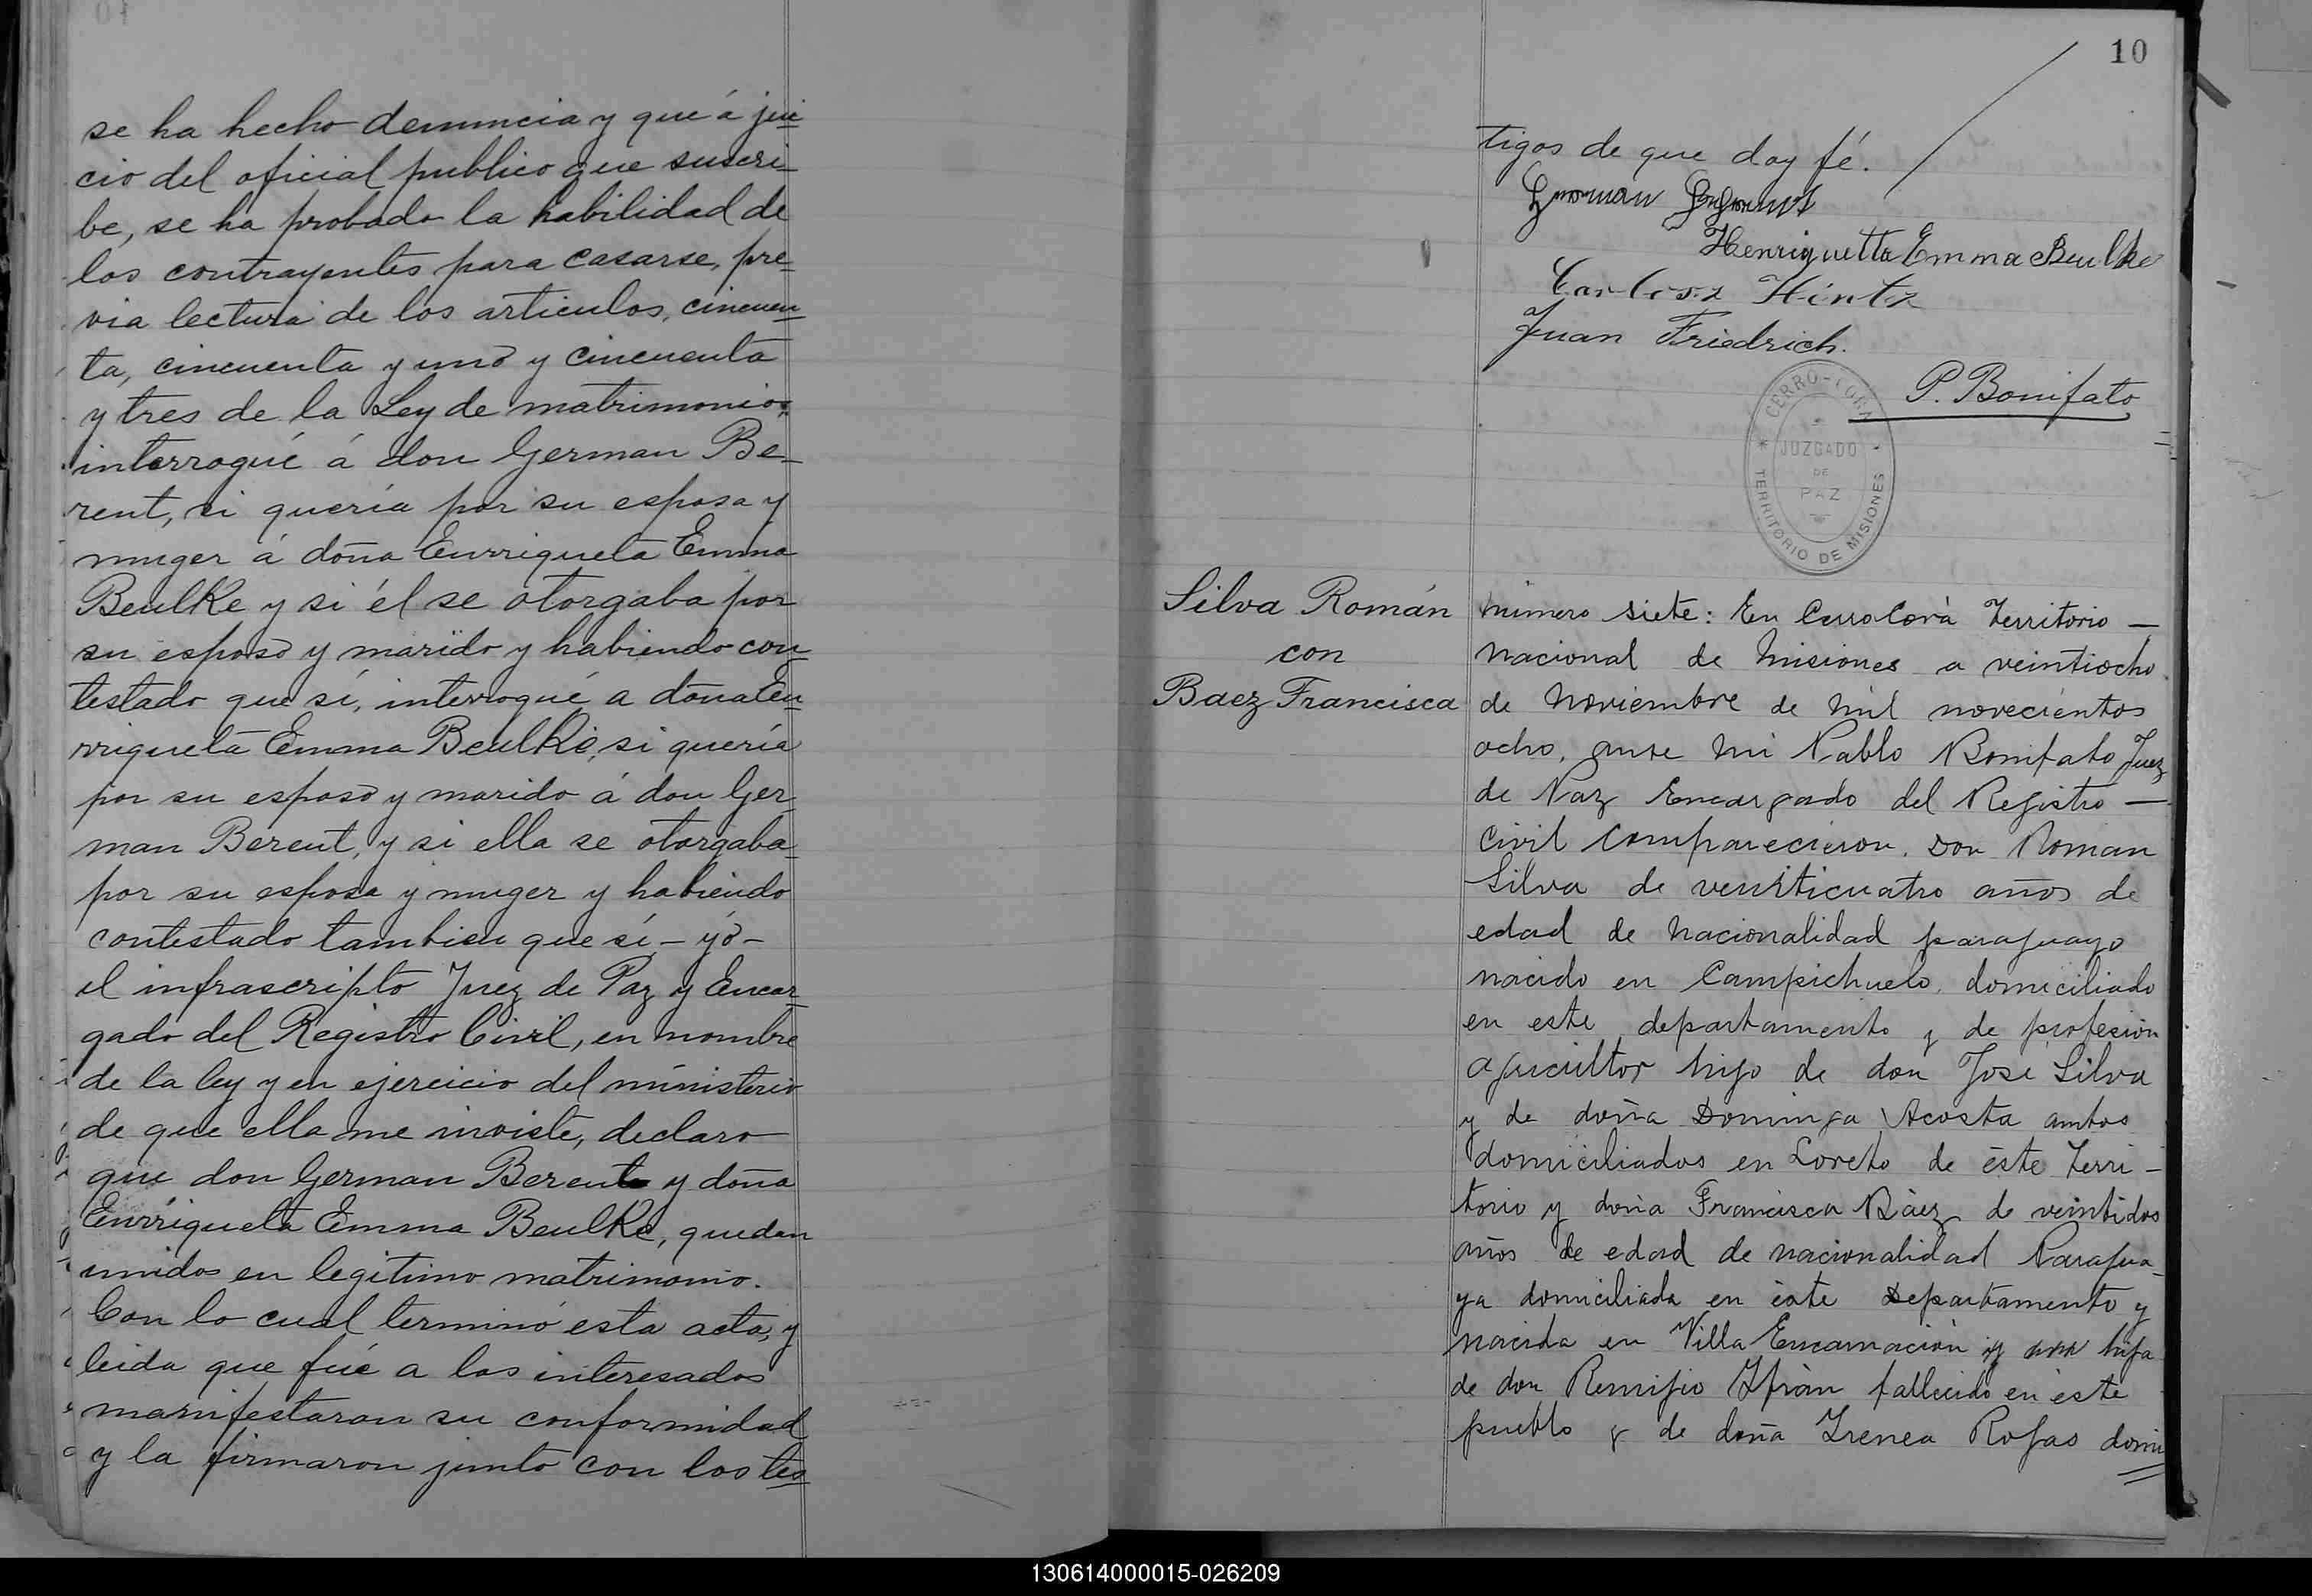 se ha hecho denuncia y que á jui
cio del oficial publico que suscri-
be, se ha probado la habilidad de
los contrayentes para casarse, pre-
via lectura de los articulos, cincuen
ta, cincuenta y uno y cincuenta
y tres de la Ley de matrimonio,
interrogué á don German Be-
rent, si quería por su esposa y
muger á doña Enrriqueta Emma
Beulke y si él se otorgaba por
su esposo y marido y habiendo con
testado que sí, interrogué a doña En
rriqueta Emma Beulke, si quería
por su esposo y marido á don Ger
man Berent, y si ella se otorgaba-
por su esposa y muger y habiendo
contestado tambien que sí - yó -
el infrascripto Juez de Paz y Encar
gado del Registro Civil, en nombre
de la ley y en ejercicio del ministerio
de que ella me inviste, declaro
que don German Berent y doña
Enrriqueta Emma Beulke, quedan
unidos en legitimo matrimonio.
Con lo cual terminó esta acta, y
leida que fué a los interesados
manifestaron su conformidad
y la firmaron junto con los tes
10
tigos de que doy fé.
Henriquetta Emma Beulke
Carlos Hintz
Juan Friedrich.
P. Bonifato
CERRO-CORA
JUZGADO
DE
PAZ
TERRITORIO DE MISIONES
Silva Román
con
Baez Francisca
Número siete: En Cerro Corá Territorio —
Nacional de Misiones a veintiocho
de Noviembre de mil novecientos
ocho, ante mi Pablo Bonifato Juez
de Paz Encargado del Registro —
Civil comparecieron. Don Roman
Silva de veinticuatro años de
edad de nacionalidad paraguayo
nacido en Campichuelo. domiciliado
en este departamento y de profesion
agricultor hijo de don José Silva
y de doña Dominga Acosta ambos
domiciliados en Loreto de éste Terri-
torio y doña Francisca Báez de veintidos
años de edad de nacionalidad Paragua-
ya domiciliada en éste Departamento y
nacida en Villa Encarnación hija
de don Remigio fallecido en éste
pueblo y de doña Irenea Rojas domi
130614000015-026209